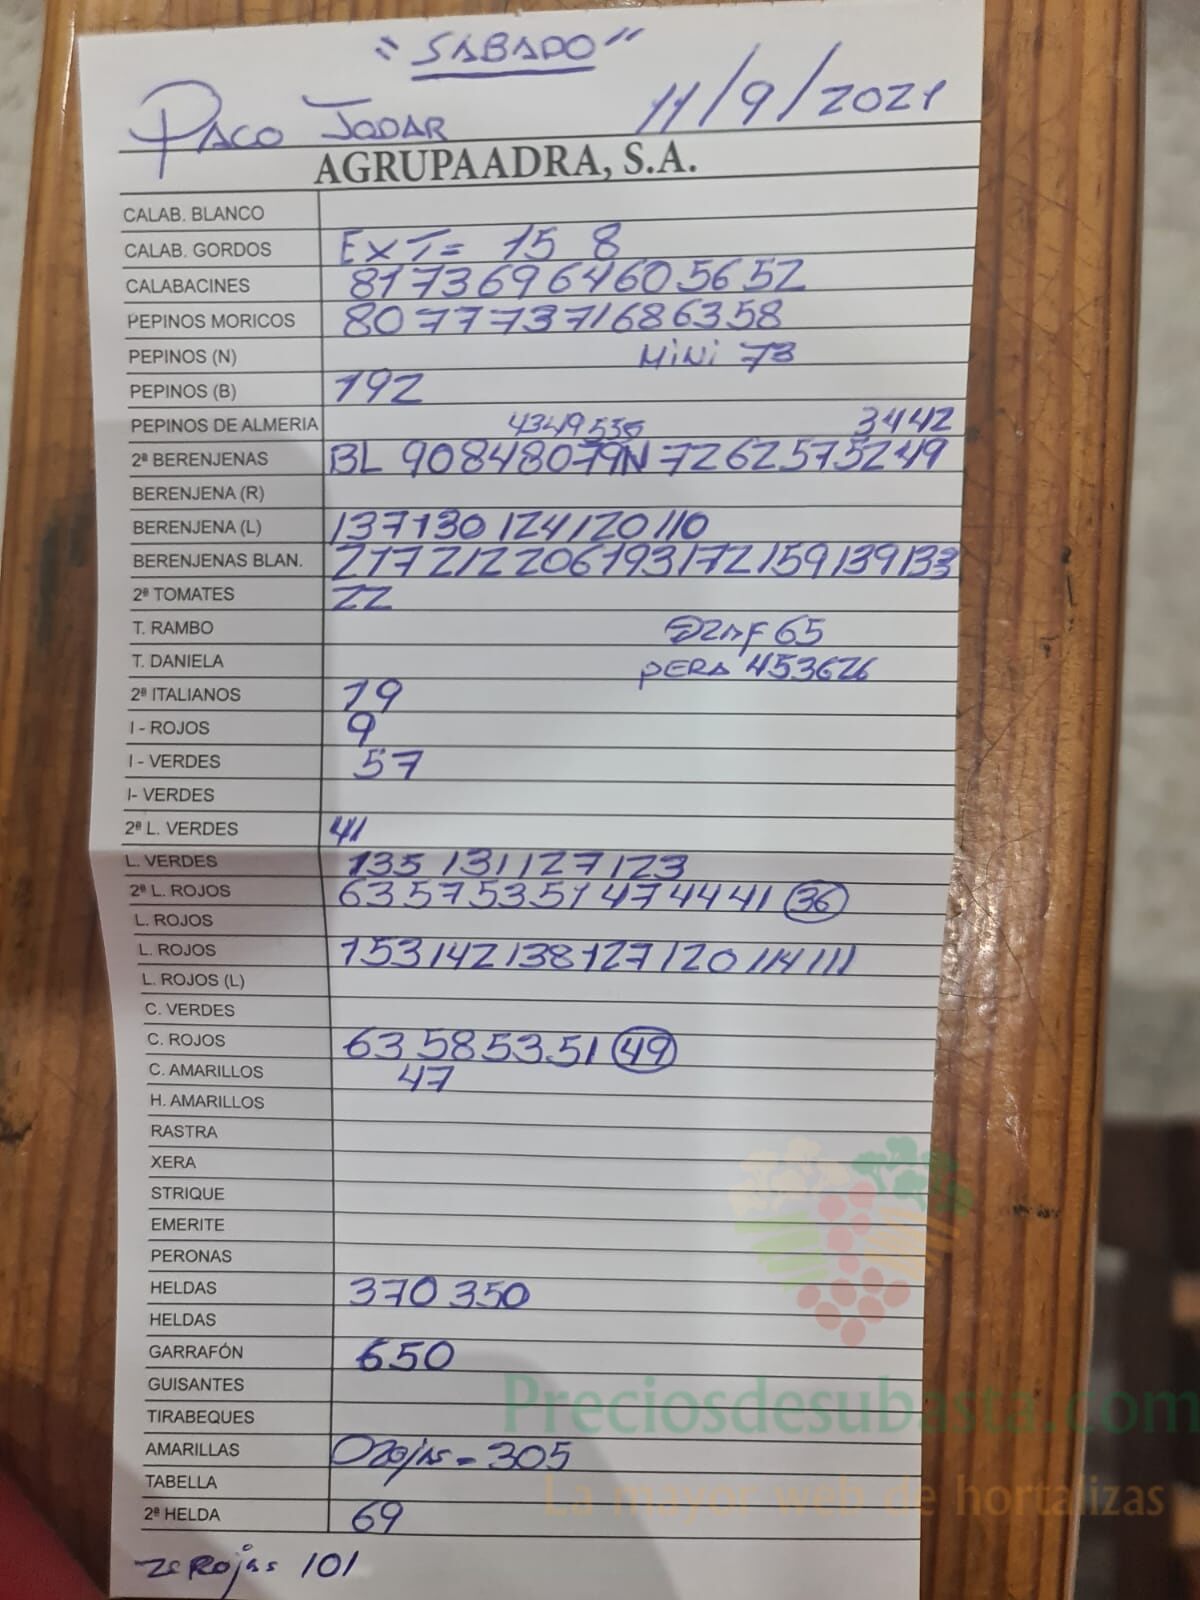 "SABADO"
PACO JODAR 11/9/2021
AGRUPAADRA, S.A.
CALAB. BLANCO
CALAB. GORDOS EXT= 15 8
CALABACINES 81 73 69 64 60 56 52
PEPINOS MORICOS 80 77 73 71 68 63 58
PEPINOS (N) MiNi 73
PEPINOS (B) 192
PEPINOS DE ALMERIA 43 49 55 34 42
2ª BERENJENAS BL 90 84 80 79 N 72 62 57 52 49
BERENJENA (R)
BERENJENA (L) 137 130 124 120 110
BERENJENAS BLAN. 217 212 206 193 172 159 139 133
2ª TOMATES 22
T. RAMBO 65
T. DANIELA PERA 45 36 26
2ª ITALIANOS 19
I - ROJOS 9
I - VERDES 57
I- VERDES
2ª L. VERDES 41
L. VERDES 135 131 127 123
2ª L. ROJOS 63 57 53 51 47 44 41 36
L. ROJOS
L. ROJOS 153 142 138 127 120 114 111
L. ROJOS (L)
C. VERDES
C. ROJOS 63 58 53 51 49
C. AMARILLOS 47
H. AMARILLOS
RASTRA
XERA
STRIQUE
EMERITE
PERONAS
HELDAS 370 350
HELDAS
GARRAFÓN 650
GUISANTES
TIRABEQUES
AMARILLAS = 305
TABELLA
2ª HELDA 69
Rojas 101
Preciosdesubasta.com
La mayor web de hortalizas